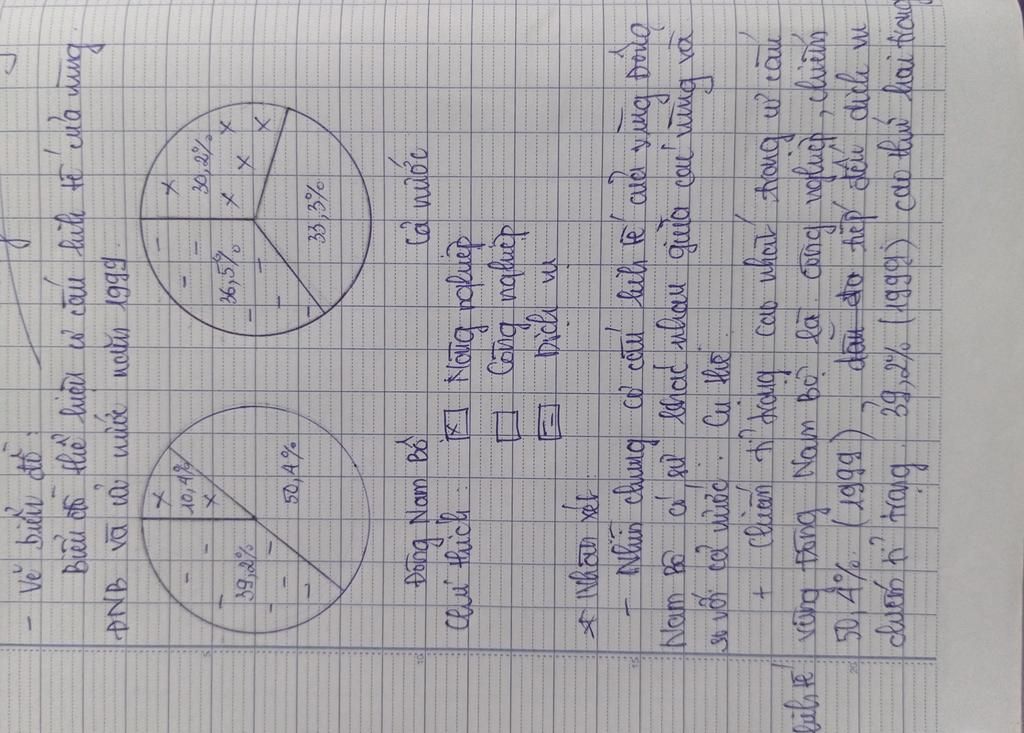 - Vẽ biểu đồ:
Biểu đồ thể hiện cơ cấu kinh tế của vùng
ĐNB và cả nước năm 1999.
39,2%
10,4%
50,4%
36,5%
30,2%
33,3%
Đông Nam Bộ
Cả nước
Chú thích:
Nông nghiệp
Công nghiệp
Dịch vụ
* Nhận xét:
- Nhìn chung cơ cấu kinh tế của vùng Đông
Nam Bộ có sự khác nhau giữa các vùng và
so với cả nước. Cụ thể:
+ Chiếm tỉ trọng cao nhất trong cơ cấu
kinh tế vùng Đông Nam Bộ là công nghiệp, chiếm
50,4% (1999) tiếp đến dịch vụ
chiếm tỉ trọng 39,2% (1999) cao thứ hai trong